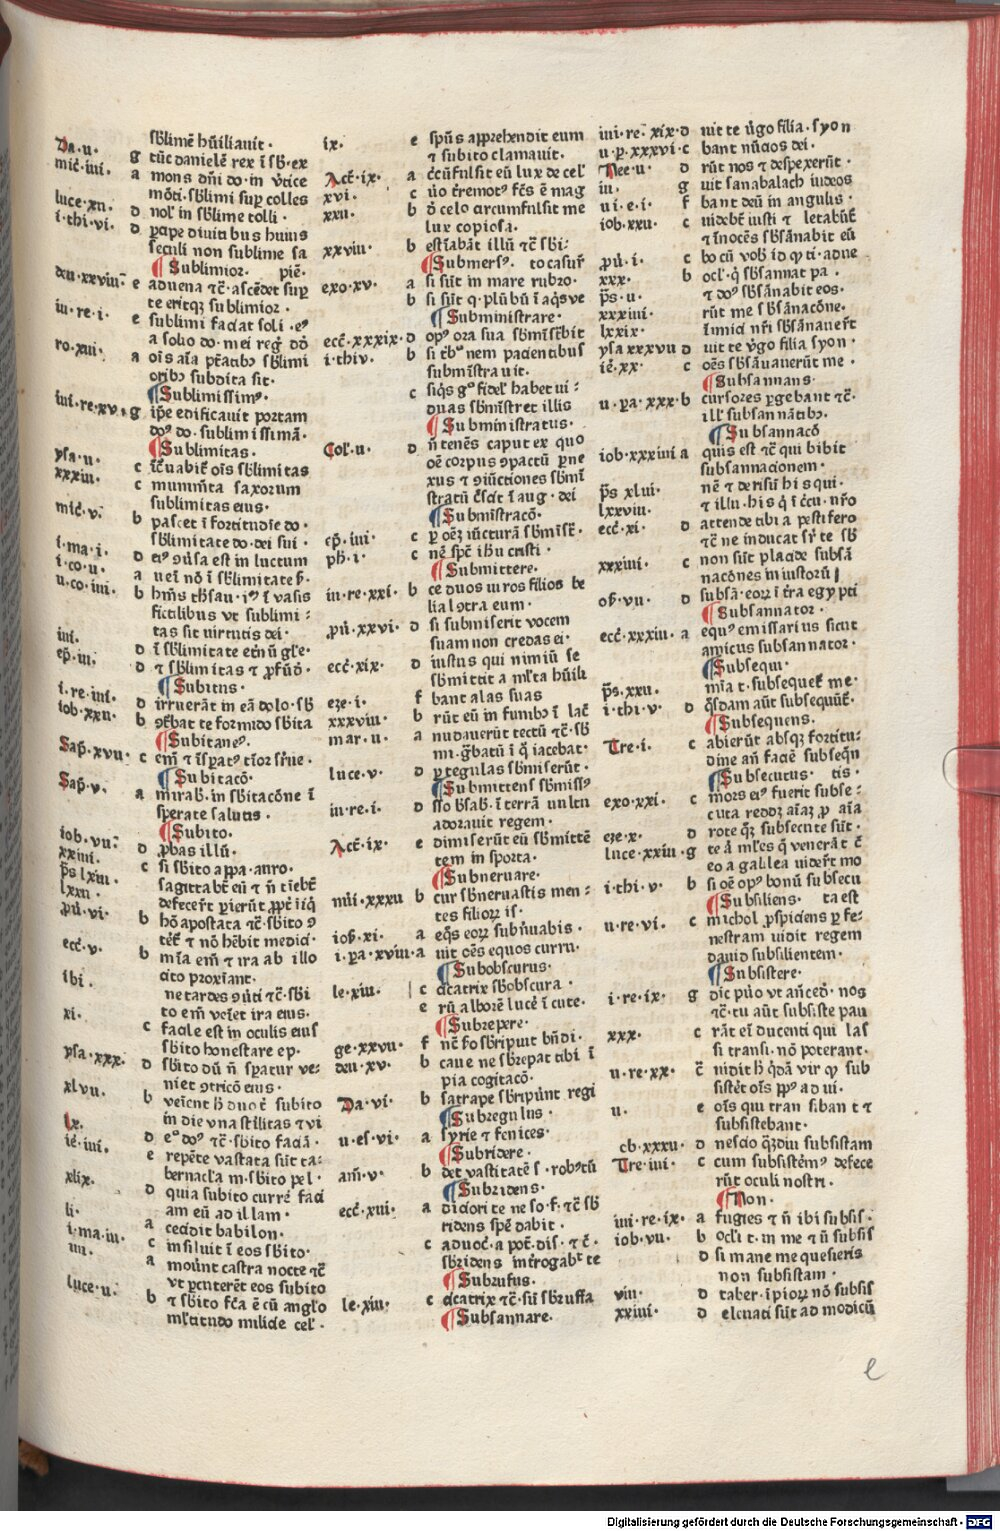 sb̄limē hūiliauit ·
Da·u· g tūc danielē rex ī sb̄·ex
mic̄·iiii· a mons dn̄i do·in v̄tice
mōti·sb̄limi sup̱ colles
luce·xii· d nol' in sb̄lime tolli ·
i·thi·vi· d p̱cipe diuiti bus huius
seculi non sublime sa
¶ Sublimior· piē·
deu·xxviii· e aduena ⁊c̄·ascēdet sup̱
te eritqȝ sublimior ·
iii·re·i· e sublimi faciat soli ·eꝰ
a solio do·mei reḡ dō
ro·xiii· a oīs aīa p̄tatibꝰ sb̄limi
oribꝰ subdita sit·
¶ Sublimissimꝰ·
iiii·re·xv· g ip̄e edificauit portam
doꝰ do·sublimissimā·
¶ Sublimitas·
ysa·u· c īc̄uabit̄ oīs sb̄limitas
xxxiii· c munim̄ta saxorum
sublimitas eius·
mic̄·v· b pascet ī fortitudīe do·
sb̄limitate do·dei sui ·
i·ma·i· d eiꝰ ꝯūsa est in luctum
i·co·u· a ueī nō ī sb̄limitate ẜ·
u·co·iiii· b hm̄s thsau·iꝰ ī vasis
fictilibus vt sublimi:
tas sit uirtutis dei·
iii· d ī sb̄limitate etn̄ū gl̄e·
ep̄·iii· d ⁊ sb̄limitas ⁊ ꝓfūō·
¶ Subitus·
i·re·iiii· d irruerāt in eā dolo·sb̄
iob·xxii· b ꝯt̄bat te formido sb̄ita
¶ Subitaneꝰ·
Sap̄·xvii· c em̄ ⁊ īspatꝰ tīor sr̄ue·
¶ Subitacō·
Sap̄·v· a mirab̄·in sb̄itacōne ī
sperate salutis ·
¶ Subito·
iob·vii· d ꝓbas illū·
xxiiii· c si sb̄ito appa·auro·
p̄s lxiii· sagittabt̄ eū ⁊ n̄ tīebt̄
lxxii· defecer̄t pierūt ꝓpt̄ iīq̄
pū·vi· b hō apostata ⁊c̄·sb̄ito ꝯ
tēt̄ ⁊ nō hēbit medici·
ecc̄·v· b mīa em̄ ⁊ ira ab illo
cito proxīant·
ibi· ne tardes ꝯūti ⁊c̄·sb̄i
to em̄ veīet ira eius·
xi· c facile est in oculis eius
sb̄ito honestare ep·
ysa·xxx· d sb̄ito dū n̄ spatur ve:
niet ꝯtricō eius·
xlvii· b veīent h̄ duo t̄ subito
in die vna stīlitas ⁊ vi
lx· d eꝰ doꝰ ⁊c̄·sb̄ito faciā·
ie·iiii· e repēte vastata sūt ta:
bernac̄la m·sb̄ito pel·
xlix· d quia subito curre faci
am eū ad illam ·
li· a cecidit babilon·
i·ma·iii· c insiluit ī eos sb̄ito·
iiii· a mouīt castra nocte ⁊c̄
vt pcuterēt eos subito
luce·u· b ⁊ sb̄ito fc̄a ē cū angl̄o
ml̄titudo milicie cel'·
ix· e sp̄us apprehendit eum
⁊ subito clamauit·
Act̄·ix· a c̄cūfulsit eū lux de cel'
xvi· c ūo t̄remotꝰ fc̄s ē mag
xxii· b d̄ celo circumfulsit me
lux copiosa·
xxviii· b estīabāt illū ⁊c̄ sb̄i:
¶ Submersꝰ· to casur̄
exo·xv· a si sūt in mare rubro·
b si sūt q·plūbū ī aq̄s ve
¶ Subministrare·
ecc̄·xxxix· d opꝰ ora sua sb̄mīst̄bit
i·thiv· b si t̄bꝰ nem pacientibus
submīstrauit·
c siq̄s gꝰ fidel' habet ui:
duas sb̄mīstret illis
¶ Subministratus·
Col'·u· d n̄ tenēs caput ex quo
oē corpus ꝯpactū p̱ ne
xus ⁊ ꝯiūctiones sb̄mī
stratū c̄scit ī aug·dei
¶ Submīstracō·
ep̄·iiii· c p̱ oēȝ iūcturā sb̄mīst̄·
ph̄·i· c nē spē ihū cristi·
¶ Submittere·
iii·re·xxi· b ce duos uiros filios be
lial ꝯtra eum·
pū·xxvi· d si submiserit vocem
suam non credas ei·
ecc̄·xix· d iustus qui nimiū se
sb̄mittit a ml̄ta hūili
eze·i· f bant alas suas
xxxviii· b rūt eū in fumbꝰ ī lac̄
mar·ii· a nudauerūt tectū ⁊c̄·sb̄
mi·ḡbatū ī q̄ iacebat·
luce·v· d p̱ tegulas sb̄miserūt·
¶ Submittens sb̄missꝰ
iii·re·i· d sso b̄sab̄·ī terrā uultu
adorauit regem·
Act̄·ix· e dimiserūt eū sb̄mittē
tem in sporta·
¶ Subneruare·
nūi·xxxii b cur sb̄neruastis men:
tes filioꝝ is·
ioſ·xi· a eq̄s eoꝝ subn̄uabis·
i·pa·xviii· a uit oēs equos curru·
¶ Subobscurus·
le·xiii· c cicatrix sb̄obscura·
e rū alborē lucē ī cute·
¶ Subrepere·
ge·xxvii· f nē·fo sb̄ripuit bn̄di·
deu·xv· b caue ne sb̄repat tibi ī
pia cogitacō·
Da·vi· b satrape sb̄ripūnt regi
¶ Subregulus·
u·es·vi· a syrie ⁊ fenices·
¶ Subridere·
am̄·v· b det vastitatē s·robꝰtū
¶ Subridens·
ecc̄·xiii· a diciori te ne so·f·⁊c̄ sb̄
ridens spē dabit·
c aduoc̄·a pot̄·dis·⁊ c̄·
sb̄ridens int̄rogabt̄ te
¶ Subrufus·
le·xiii· c cicatrix ⁊c̄·sīi sb̄ruffa
¶ Subsannare·
iiii·re·xix·d uit te v̄go filia·syon
u·p·xxxvi·c bant nūcios dei·
Nee·u· d rūt nos ⁊ despexerūt·
iii· g uit sanabalach iudeos
ui·e·i· f bant deū in angulis·
iob·xxii· c uidebt̄ iusti ⁊ letabūt̄
⁊ īnocēs sb̄sānabit eū
pū·i· c bo cū vob̄ id qꝫ ti·adue
xxx· b ocl'·q̄ sb̄sannat pa·
p̄s·u· ⁊ doꝰ sb̄sānabit eos·
xxxiiii· rūt me sb̄sānacōne·
lxxix· īimici nr̄i sb̄sānauer̄t
ysa xxxvii d uit te v̄go filia syon·
iē·xx· c oēs sb̄sāuauerūt me·
¶ Subsannans·
u·pa·xxx·b cursores p̱gebant ⁊c̄·
ill' subsannātibꝰ·
¶ Subsannacō
iob·xxxiiii a quis est ⁊c̄ qui bibit
subsannacionem·
p̄s xlui· nē ⁊ derisū his qui·
lxxviii· ⁊ illu·his q̄ ī c̄cu·nr̄o
ecc̄·xi· d attende tibi a pestifero
⁊c̄ ne inducat sr̄ te sb̄
xxxiiii· c non sūt placide subsā
nacōnes iniustorū
oſ·vii· d subsā·eoꝝ ī t̄ra egypti
¶ Subsannator·
ecc̄·xxxiii· a equꝰ emissarius sicut
amicus subsannator·
¶ Subsequi·
p̄s·xxii· mīa t·subsequet̄ me·
i·thi·v· d q̄sdam aūt subsequūt̄·
¶ Subsequens·
Tre·i· c abierūt absqȝ fortitu:
dine an̄ faciē subseq̄n
¶ Subsecutus· tis·
exo·xxi· c mors eiꝰ fuerit subse:
cuta reddȝ aīaȝ ꝓ aīa
eze·x· d rote q̄ȝ subsecute sūt·
luce·xxiii·g te ā ml̄es q̄ venerāt c̄
eo a galilea uider̄t mo
i·thi·v· b si oē opꝰ bonū subsecu
¶ Subsiliens· ta est
u·re·vi· c michol ꝓspiciens p̱ fe:
nestram uidit regem
dauid subsilientem·
¶ Subsistere·
i·re·ix· g dic pūo vt an̄ced̄·nos
⁊c̄·tu aūt subsiste pau
xxx· c rāt eī ducenti qui las
si transi·nō poterant·
u·re·xx· c̄ uidit h̄ q̄dā vir qꝫ sub
sistēt oīs pp̄s ad ui·
u· e oīs qui transibant ⁊ t
subsistebant·
eb·xxxii· d nescio q̄ȝdiu subsistam
Tre·iiii· c cum subsistēmꝰ defece
rūt oculi nostri·
¶ Non·
iiii·re·ix· a fugies ⁊ n̄ ibi subsis·
iob·vii· b ocl'i t·in me ⁊ n̄ subsis
d si mane me quesieris
non subsistam·
viii· d taber·īpioꝝ nō subsis
xxiiii· d eleuati sūt ad modicū
e
Digitalisierung gefördert durch die Deutsche Forschungsgemeinschaft · DFG